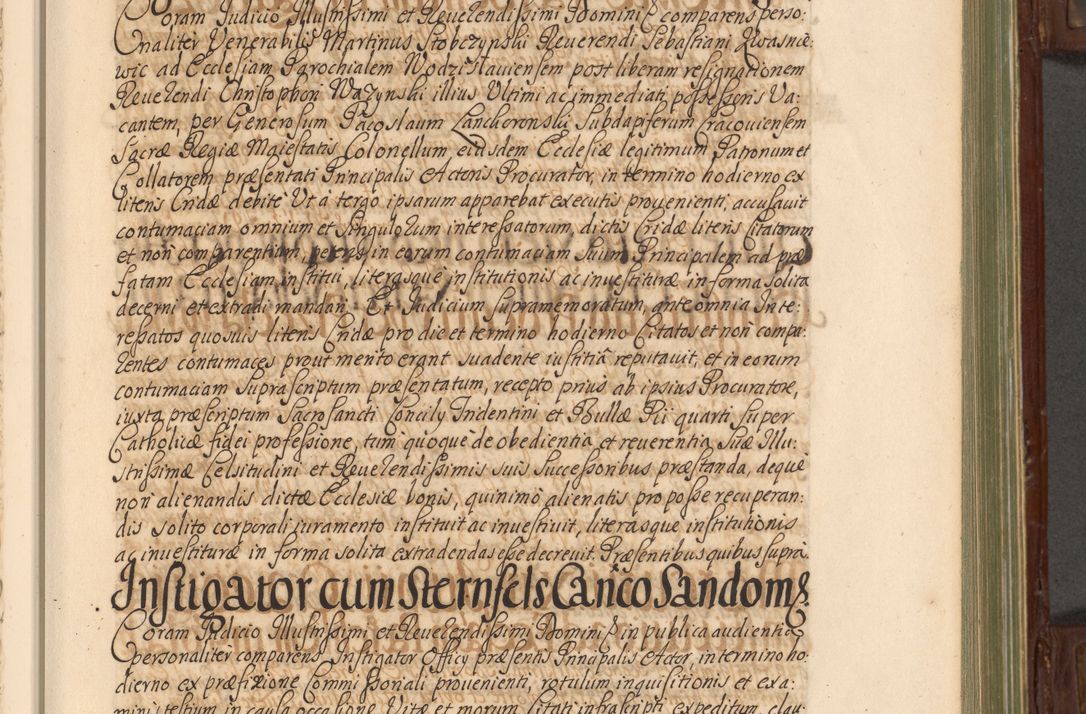 Coram Judicio Illustrissimi et Reverendissimi Domini &c comparens perso:
naliter Venerabilis Martinus Stobczynski Reuerendi Sebastiani Kwasnie:
wic ad Ecclesiam Parochialem Wodzislauiensem post liberam resignationem
Reuerendi Christophori Wazynski illius Ultimi ac immediati possessoris Va:
cantem, per Generosum Pacoslaum Lanckoronski Subdapiferum Cracouiensem
Sacræ Regiæ Maiestatis Colonellum, eiusdem Ecclesiæ legitimum Patronum et
Collatorem præsentati Principalis Actoris Procurator, in termino hodierno ex
literis Cridæ debite Ut a tergo ipsarum apparebat executis prouenienti, accusauit
contumaciam omnium et Singulorum interessatorum, dictis Cridæ literis Citatorum
et non comparentium, petens in eorum contumaciam Suum Principalem ad præ
fatam Ecclesiam institui, literasque institutionis ac inuestituræ in forma solita
decerni et extradi mandari. Et Judicium supramemoratum, ante omnia Inte:
ressatos quosuis literis Cridæ pro die et termino hodierno Citatos et non compa:
rentes contumaces prout merito erant suadente iustitia reputauit, et in eorum
contumaciam suprascriptum præsentatum, recepto prius ab ipsius Procuratore,
iuxta præscriptum Sacrosancti Concily Tridentini et Bullæ Pii quarti super
Catholicæ fidei professione, tum quoque de obedientia et reuerentia Suæ Illu:
strissimæ Celsitudini et Reuerendissimis suis Successoribus præstanda, deque
non alienandis dictæ Ecclesiæ bonis, quinimo alienatis pro posse recuperan:
dis solito corporali iuramento instituit ac inuestiuit, literasque institutionis
ac inuestituræ in forma solita extradendas esse decreuit. Præsentibus quibus supra.
Instigator cum Sternfels Canco Sandom&
Coram Judicio Illustrissimi et Reuerendissimi Domini &c in publica audientia
personaliter comparens Instigator Officy præsentis Principalis Actor, in termino ho:
dierno ex præfixione Commissoriali prouenienti, rotulum inquisitionis et exa:
minis testium in causa occasione Vitæ et morum Citati infrascripti expeditum, clau: